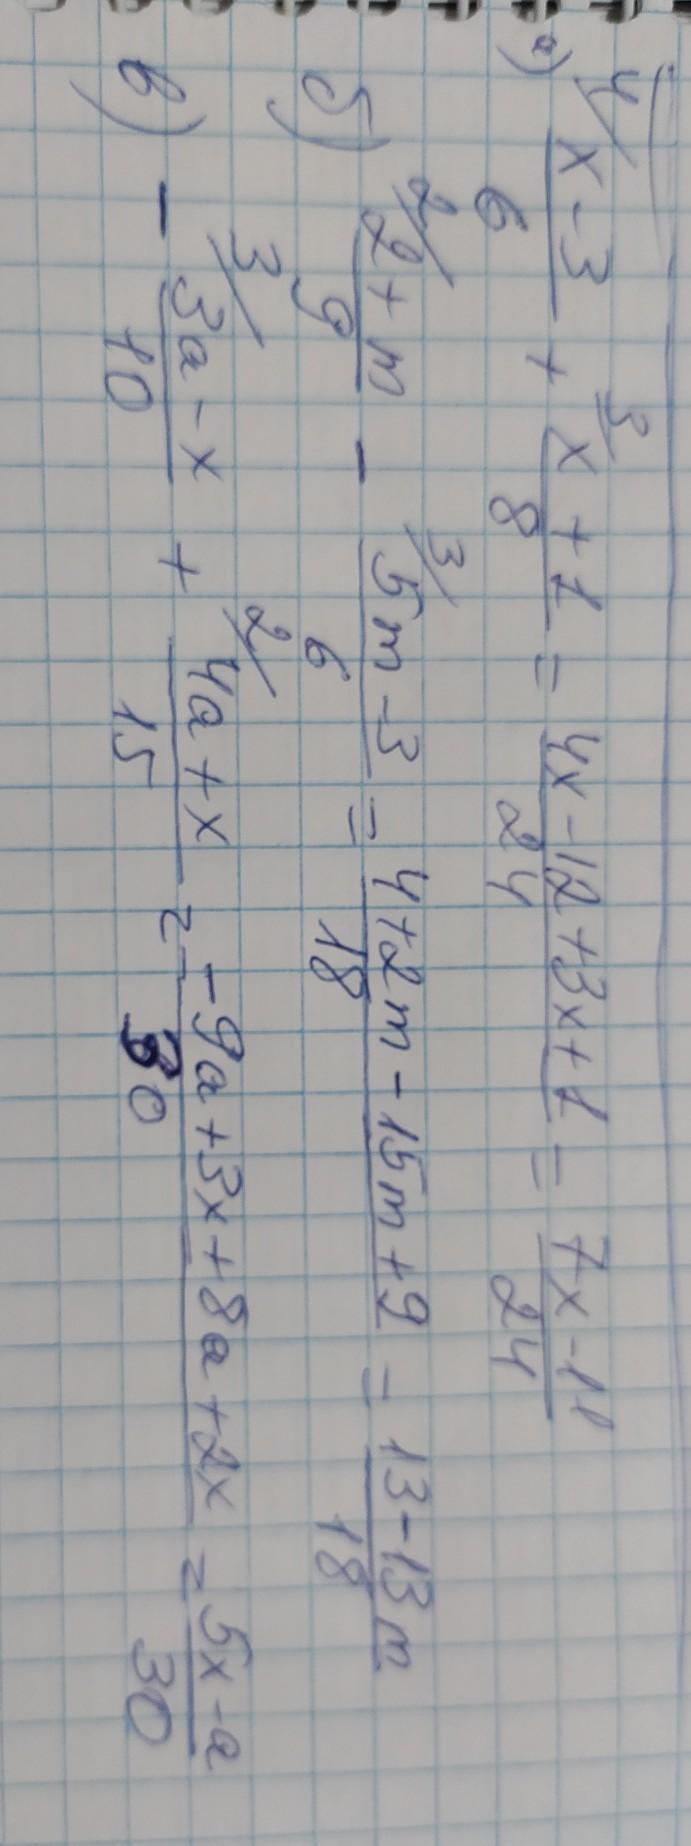 а) ⁴/ (x-3)/6 + ³/ (x+1)/8 = (4x-12+3x+1)/24 = (7x-11)/24
б) ²/ (2+m)/9 - ³/ (5m-3)/6 = (4+2m-15m+9)/18 = (13-13m)/18
в) - ³/ (3a-x)/10 + ²/ (4a+x)/15 = (-9a+3x+8a+2x)/30 = (5x-a)/30